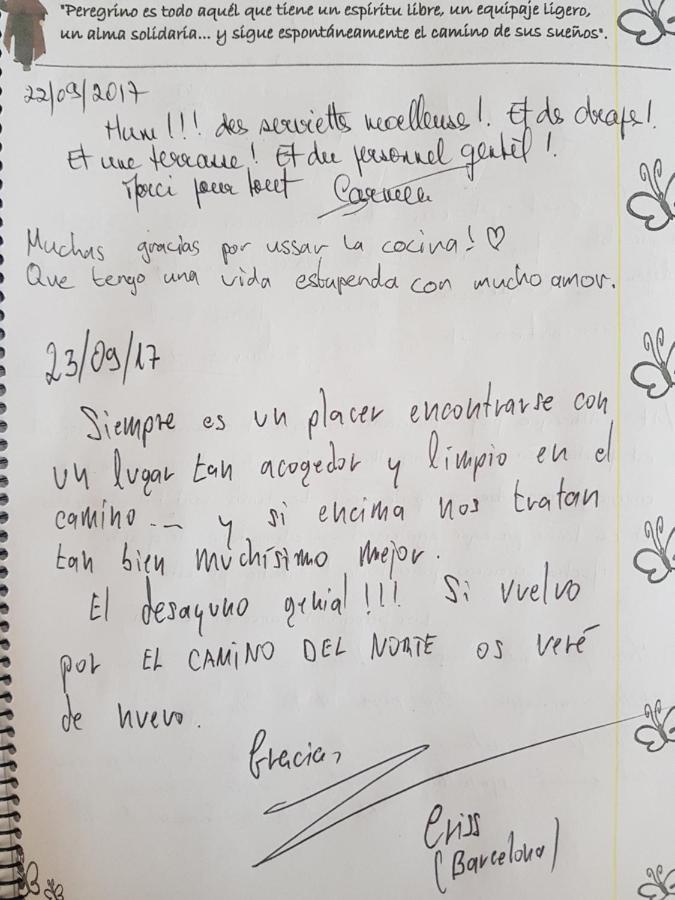 "Peregrino es todo aquél que tiene un espíritu libre, un equipaje ligero,
un alma solidaria... y sigue espontáneamente el camino de sus sueños".
22/09/2017
Hum!!! des serviettes moelleuse!. Et des draps!
Et une terrasse! Et du personnel gentil!
Merci pour tout
Muchas gracias por ussar la cocina! ♡
Que tengo una vida estupenda con mucho amor.
23/09/17
Siempre es un placer encontrarse con
un lugar tan acogedor y limpio en el
camino... y si encima nos tratan
tan bien muchísimo mejor.
El desayuno genial!!! Si vuelvo
por EL CAMINO DEL NORTE os veré
de nuevo.
Gracias,
Criss
(Barcelona)